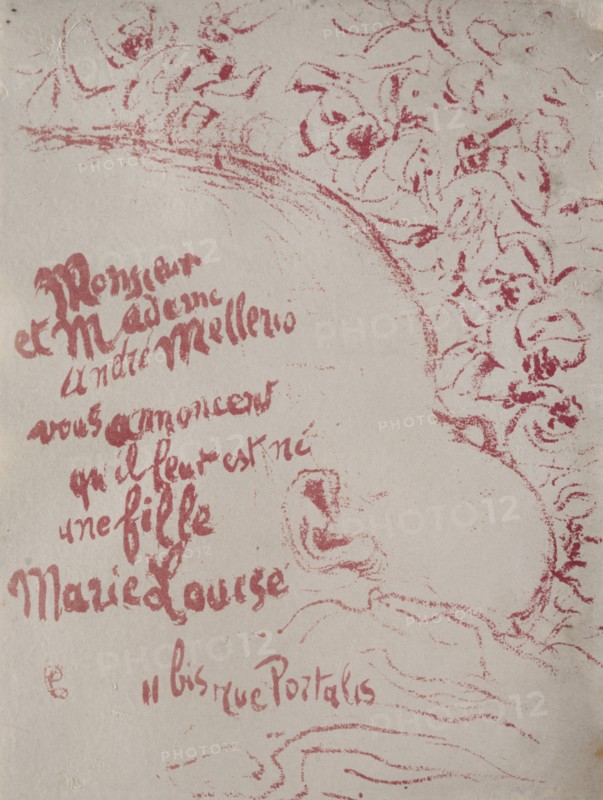 Monsieur
et Madame
André Mellerio
vous annoncent
qu'il leur est né
une fille
Marie Louise
11 bis rue Portalis
PHOTO12